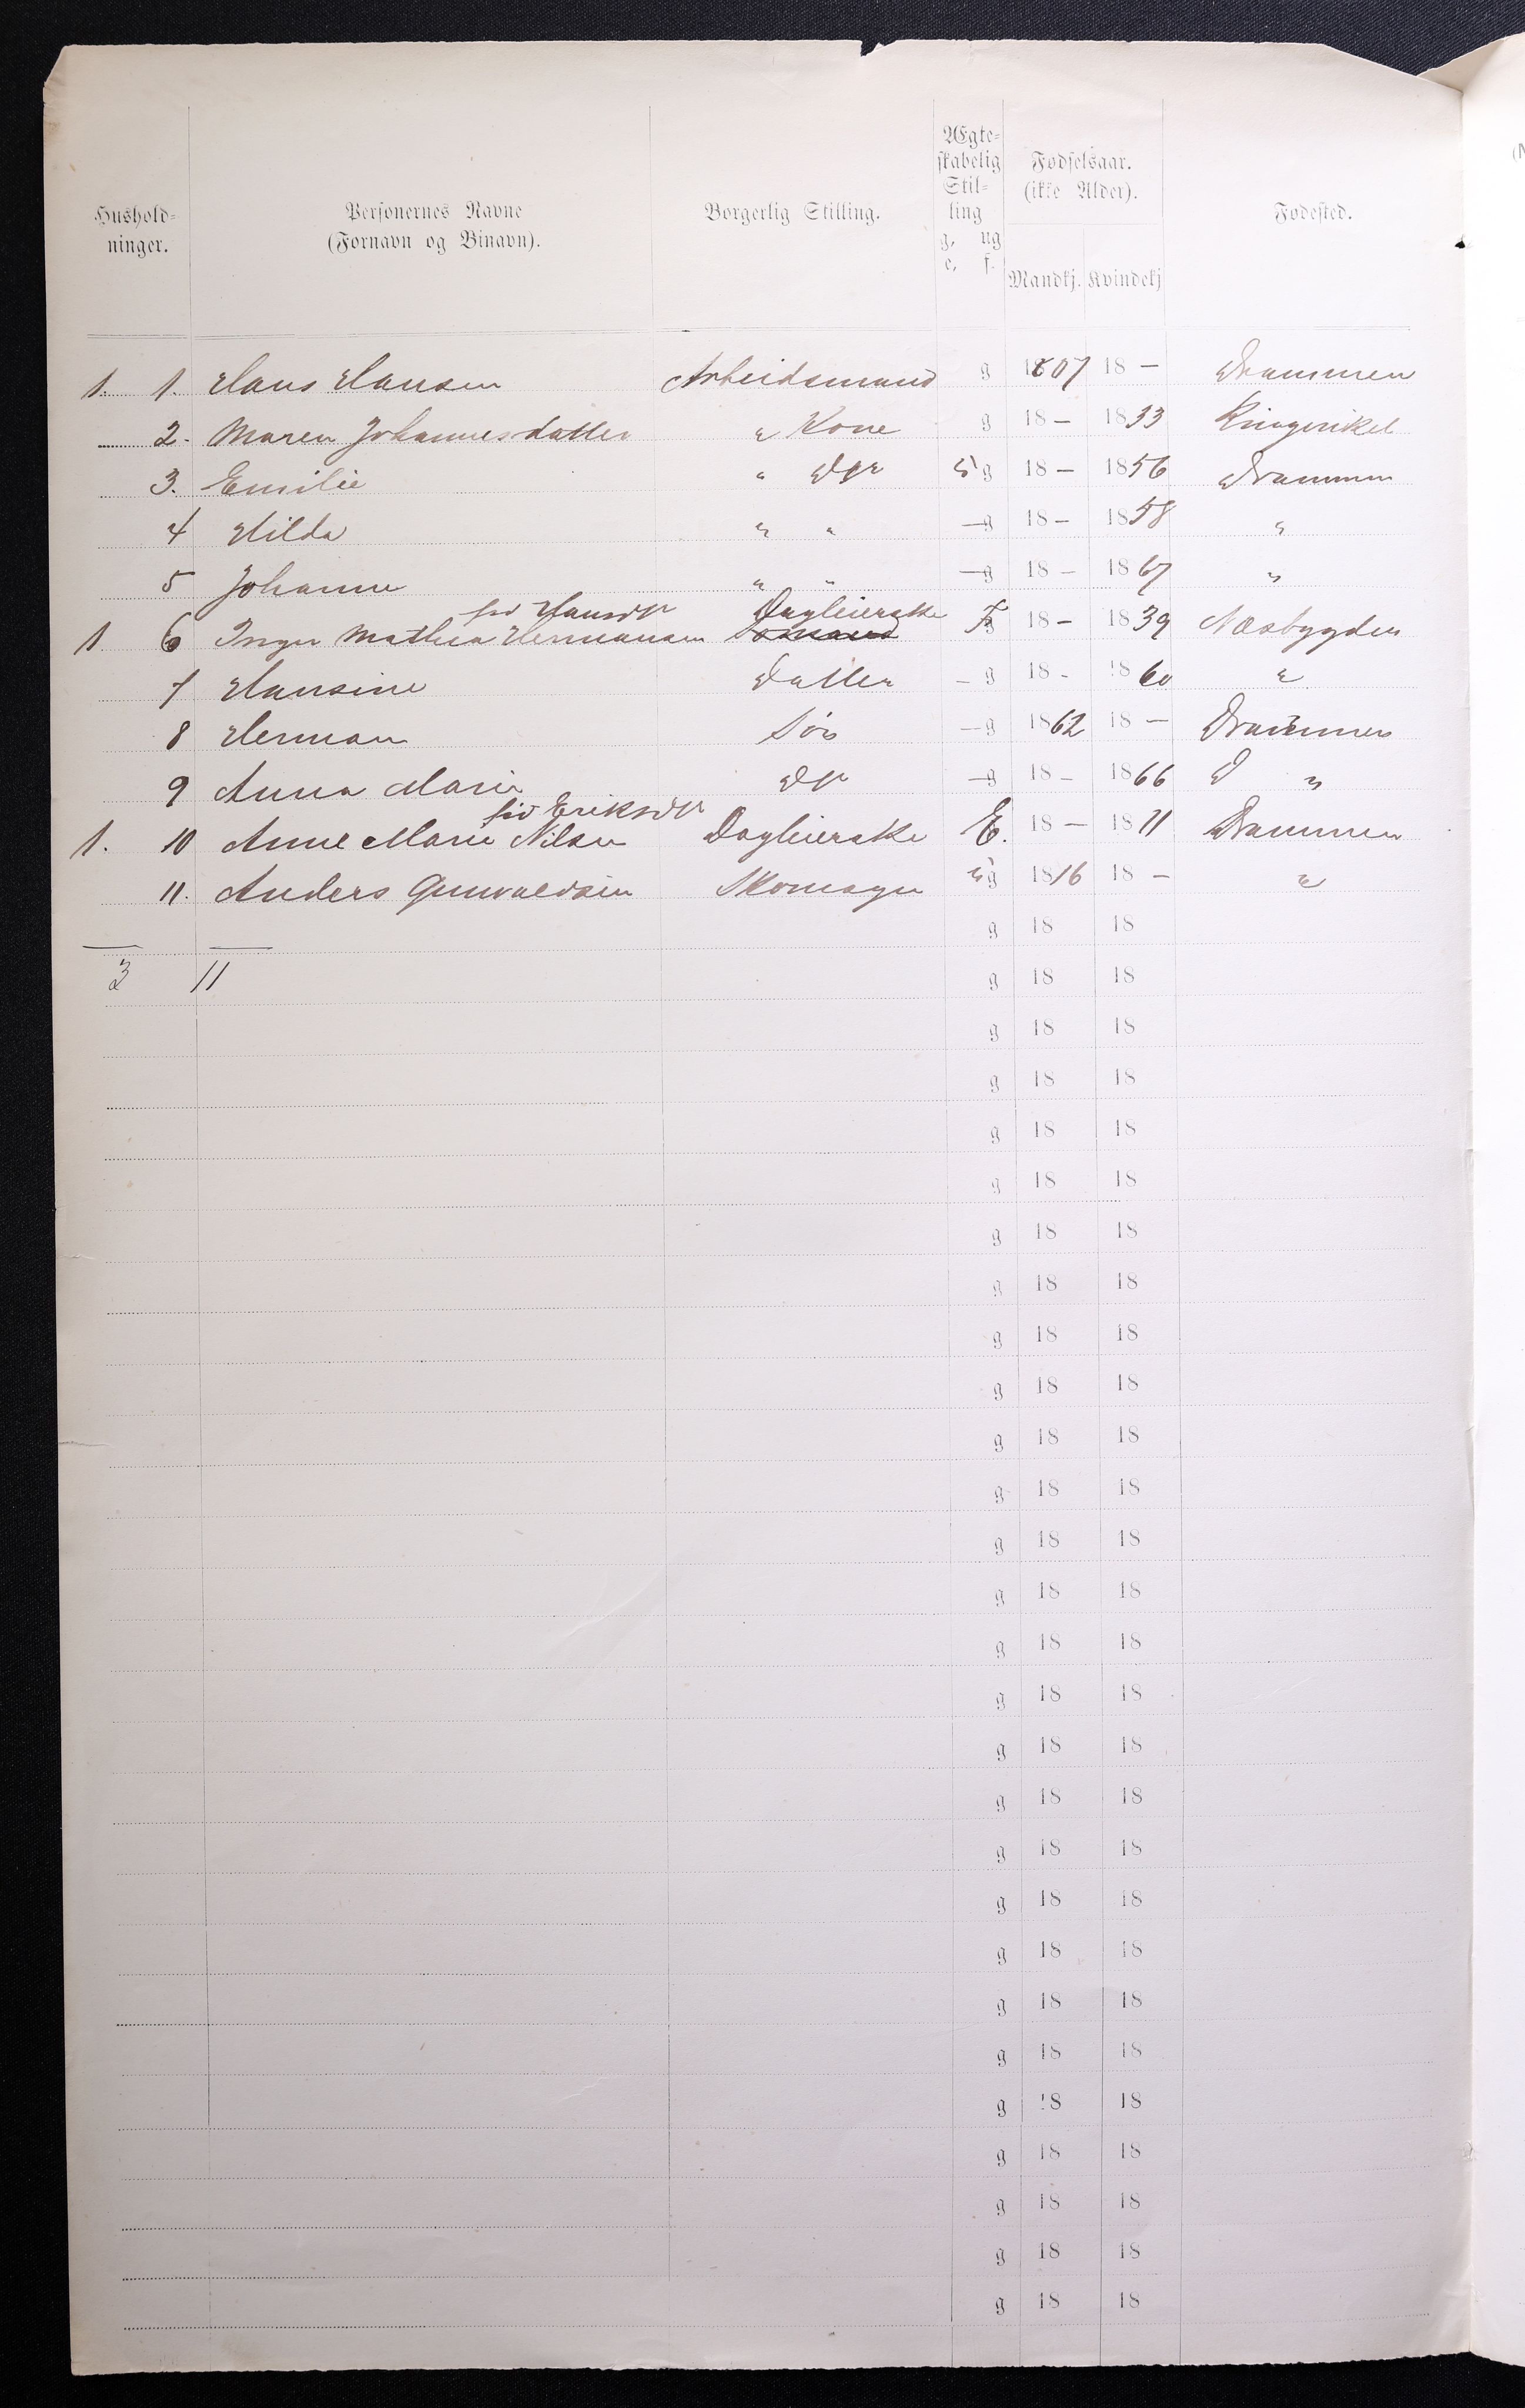 Hushold-
ninger.
Personernes Navne
(Fornavn og Binavn).
Borgerlig Stilling.
Ægte-
skabelig
Stil-
ling
g, ug
e, f.
Fødselsaar.
(ikke Alder).
Mandkj. Kvindekj
Fødested.
1. 1. Hans Hansen Arbeidsmand g 1807 18 — Drammen
2. Maren Johannesdatter " Kone g 18 — 1833 Ringeriket
3. Emilie " Dtr ug 18 — 1856 Drammen
4 Hilda " " — g 18 — 1858 "
5 Johanne " " — g 18 — 1867 "
fød Hansdtr Dagleierske
1. 6 Inger Mathea Hermansen F g 18 — 1839 Næsbygden
7 Hansine Datter — g 18 - 1860 "
8 Herman Søn — g 1862 18 — Drammen
9 Anna Marie Dtr — g 18 — 1866 D "
fød Eriksdtr
1. 10 Anne Marie Nilsen Dagleierske E. 18 — 1811 Drammen
11. Anders Gunvaldsen Skomager ug 1816 18 — "
g 18 18
3 11 g 18 18
g 18 18
g 18 18
g 18 18
g 18 18
g 18 18
g 18 18
g 18 18
g 18 18
g 18 18
g 18 18
g 18 18
g 18 18
g 18 18
g 18 18
g 18 18
g 18 18
g 18 18
g 18 18
g 18 18
g 18 18
g 18 18
g 18 18
g 18 18
g 18 18
g 18 18
g 18 18